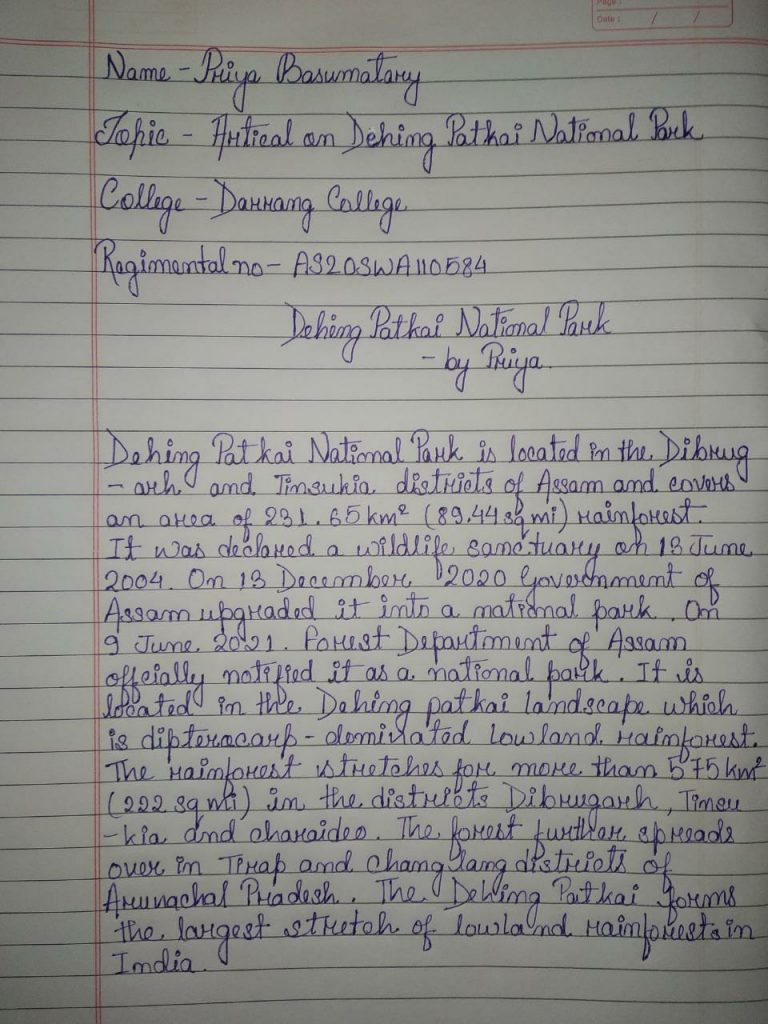 Page:
Date: / /
Name - Priya Basumatary
Topic - Artical on Dehing Patkai National Park
College - Darrang College
Regimental no - AS20SWA110584
Dehing Patkai National Park
- by Priya.
Dehing Patkai National Park is located in the Dibrug
- arh and Tinsukia districts of Assam and covers
an area of 231.65 km² (89.44 sq mi) rainforest.
It was declared a wildlife sanctuary on 13 June
2004. On 13 December 2020 Government of
Assam upgraded it into a national park. On
9 June 2021. Forest Department of Assam
offcially notified it as a national park. It is
located in the Dehing patkai landscape which
is dipteracarp - dominated lowland rainforest.
The rainforest stretches for more than 575 km²
(222 sq mi) in the districts Dibrugarh, Tinsu
- kia and charaideo. The forest further spreads
over in Tirap and Changlang districts of
Arunachal Pradesh. The Dehing Patkai forms
the largest stretch of lowland rainforests in
India.